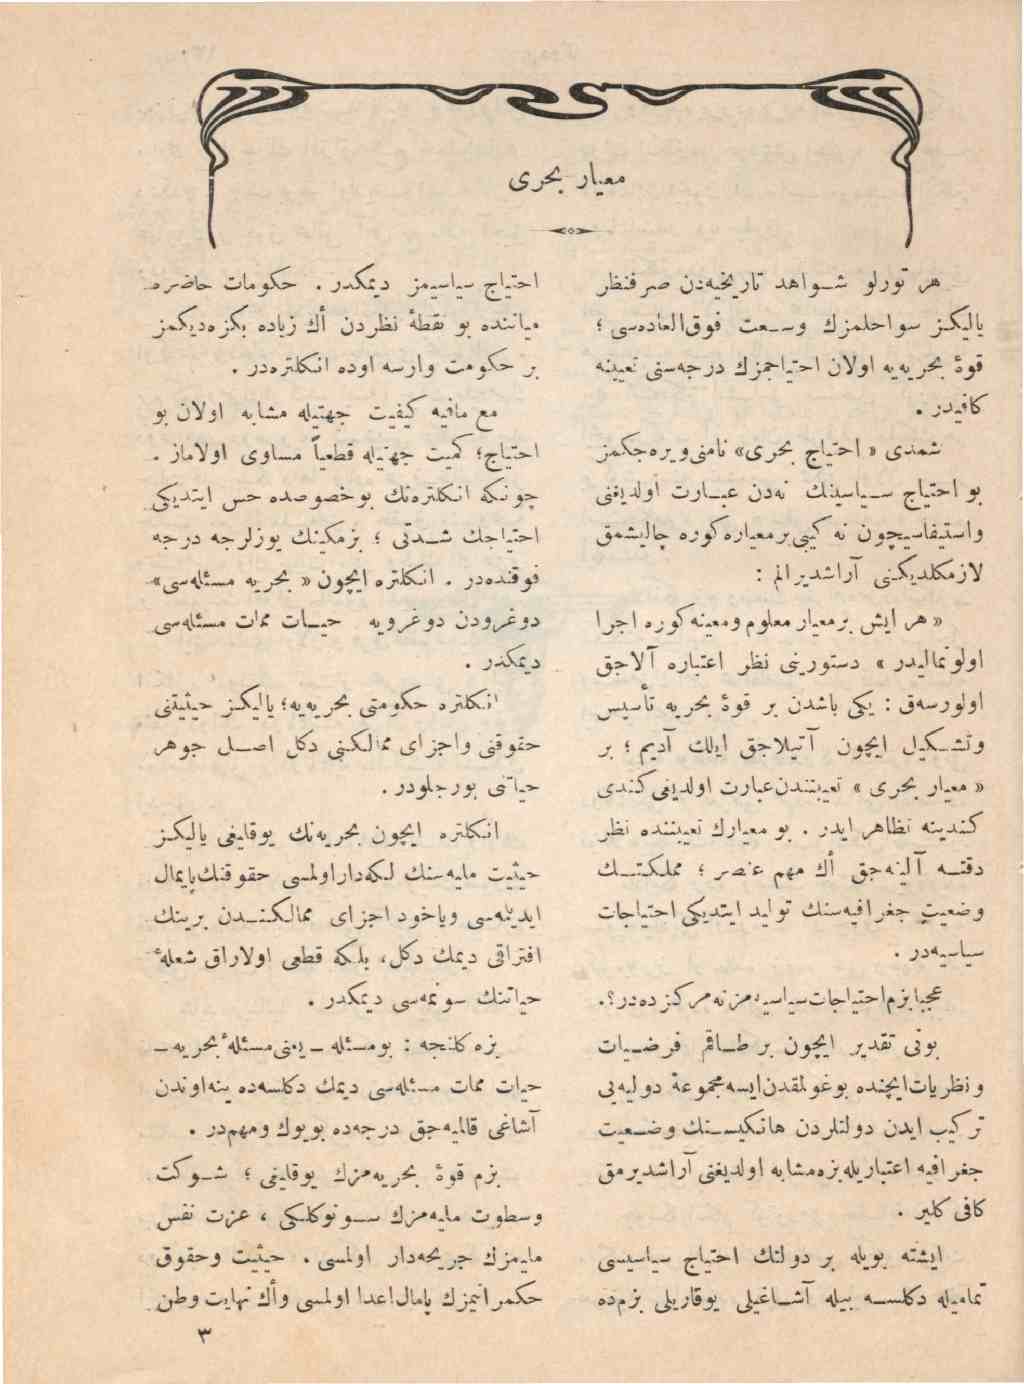 معيار بحری
هر تورلو شــواهد تاريخيه‌دن صرفنظر
يالـيكـز سواحلمزك وســعت فوق‌العاده‌سی ؛
قوهٔ بحريه‌يه اولان احتياجمزك درجه‌سنی تعيينه
كافيدر .
شمدی « احتياج بحری» نامنی‌ويره‌جكمز
بو احتياج ســياسينك نه‌دن عبــارت اولديغنی
واستيفاسيچون نه كيبی‌برمعياره‌كوره چاليشمق
لازمكلديكـنی آراشديرالم :
« هر ايش برمعيار معلوم ومعينه‌كوره اجرا
اولونماليدر » دستورينی نظر اعتباره آلاجق
اولورسه‌ق : يكی باشدن بر قوهٔ بحريه تأسيس
وتشــكيل ايچون آتيلاجق ايلك آديم ؛ بر
« معيار بحری » تعييننده‌ن‌عبارت اولديغی‌كندی
كـندينه تظاهر ايدر . بو معيارك تعييننده نظر
دقتــه آلينه‌جق اك مهم عنصر ؛ مملكتــك
وضعيت جغرافيه‌سنك توليد ايتديكی احتياجات
سياسيه‌در .
عجبابزم‌احتياجات‌سياسيه‌مزنه‌مركزده‌در؟.
بونی تقدير ايچون بر طــاقم فرضــيات
ونظريات‌ايچنده بوغولمقدن‌ايسه‌مجموعهٔ دوليه‌يی
تركيب ايدن دولتلردن هانكيســنك وضــعيت
جغرافيه اعتباريله‌بزه‌مشابه اولديغنی آراشديرمق
كافی كلير .
ايشته بويله بر دولتك احتياج سياسيسی
تماميله دكلســه بيله آشــاغيلی يوقاريلی بزم‌ده
احتياج سياسيمز ديمكدر . حكومات حاضره
مياننده بو نقطهٔ نظردن اك زياده بكزه‌ديكمز
بر حكومت وارسه اوده انكلتره‌در .
مع مافيه كيفيت جهتيله مشابه اولان بو
احتياج؛ كميت جهتيله قطعياً مساوی اولاماز .
چونكه انكلتره‌نك بوخصوصده حس ايتديكی
احتياجك شــدتی ؛ بزمكينك يوزلرجه درجه
فوقنده‌در . انكلتره ايچون « بحريه مسئله‌سی»
دوغرودن دوغرويه حيــات ممات مسئله‌سی
ديمكدر .
انكلتره حكومتی بحريه‌يه؛ ياليكـز حيثيتنی
حقوقنی واجزای ممالكـنی دكل اصــل جوهر
حياتنی بورجلودر .
انكلتره ايچون بحريه‌نك يوقليغی ياليكـز
حيثيت مليه‌سنك لـكه‌داراولمسی حقوقنك‌پايمال
ايديلمه‌سی وياخود اجزای ممالكـتــدن برينك
افتراقی ديمك دكل، بلـكه قطعی اولاراق شعلهٔ
حياتنك سونمه‌سی ديمكدر .
بزه كلنجه : بومسئله ـ يعنی‌مسئلهٔ‌بحريه ـ
حيات ممات مسئله‌سی ديمك دكلسه‌ده ينه‌اوندن
آشاغی قالميه‌جق درجه‌ده بويوك ومهم‌در .
بزم قوهٔ بحريه‌مزك يوقليغی ؛ شــوكت
وسطوت مليه‌مزك ســونوكلـكی ، عزت نفس
مليمزك جريحه‌دار اولمسی . حيثيت وحقوق
حكمرانيمزك پامال‌اعدا اولمسی واك نهايت وطن
٣